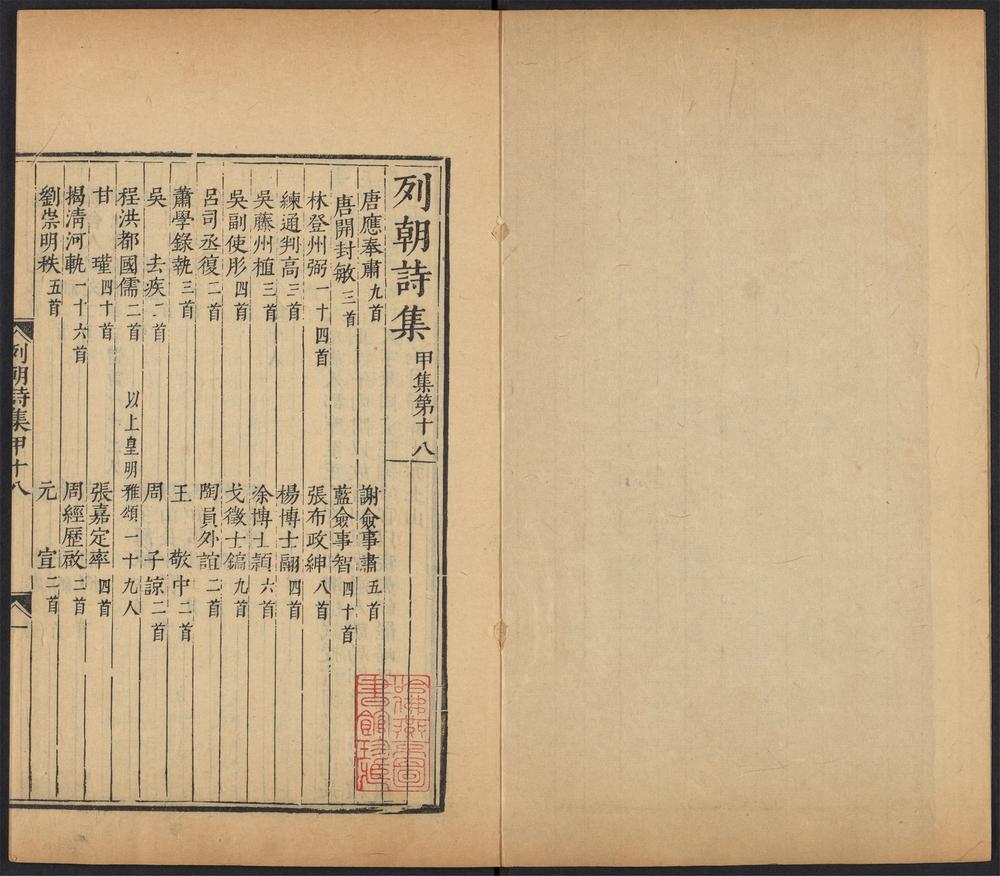 列朝詩集甲集第十八
唐應奉肅九首 謝僉事肅五首
唐開封敏三首 藍僉事智四十首
林登州弼一十四首 張布政紳八首
練通判高三首 楊博士翮四首
吳藤州植三首 徐博士穎六首
吳副使彤四首 戈徵士鎬九首
呂司丞復二首 陶員外誼二首
蕭學錄執三首 王敬中二首
吳去疾二首 周子諒二首
程洪都國儒二首 以上皇明雅頌一十九人
甘瑾四十首 張嘉定率四首
揭清河軌一十六首 周經歷啟二首
劉崇明秩五首 元宣二首
列朝詩集甲十八
一
哈佛燕京圖
書館珍藏